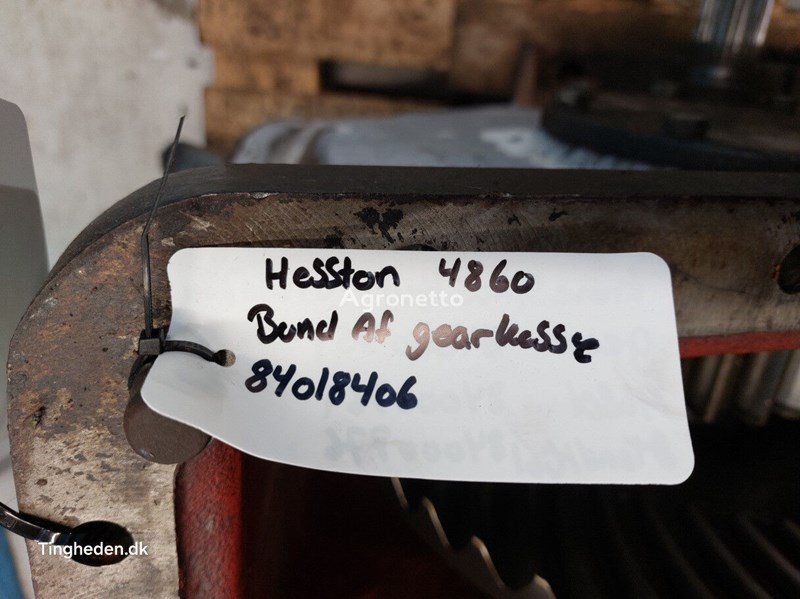 Hesston 4860
Agronetto
Bund Af gearkasse
84018406
Tingheden.dk